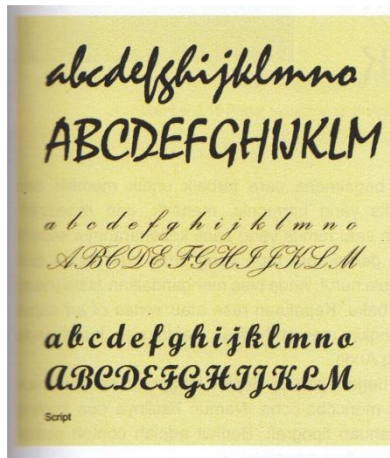 abcdefghijklmno
ABCDEFGHIJKLM
abcdefghijklmno
ABCDEFGHIJKLM
abcdefghijklmno
ABCDEFGHIJKLM
Script